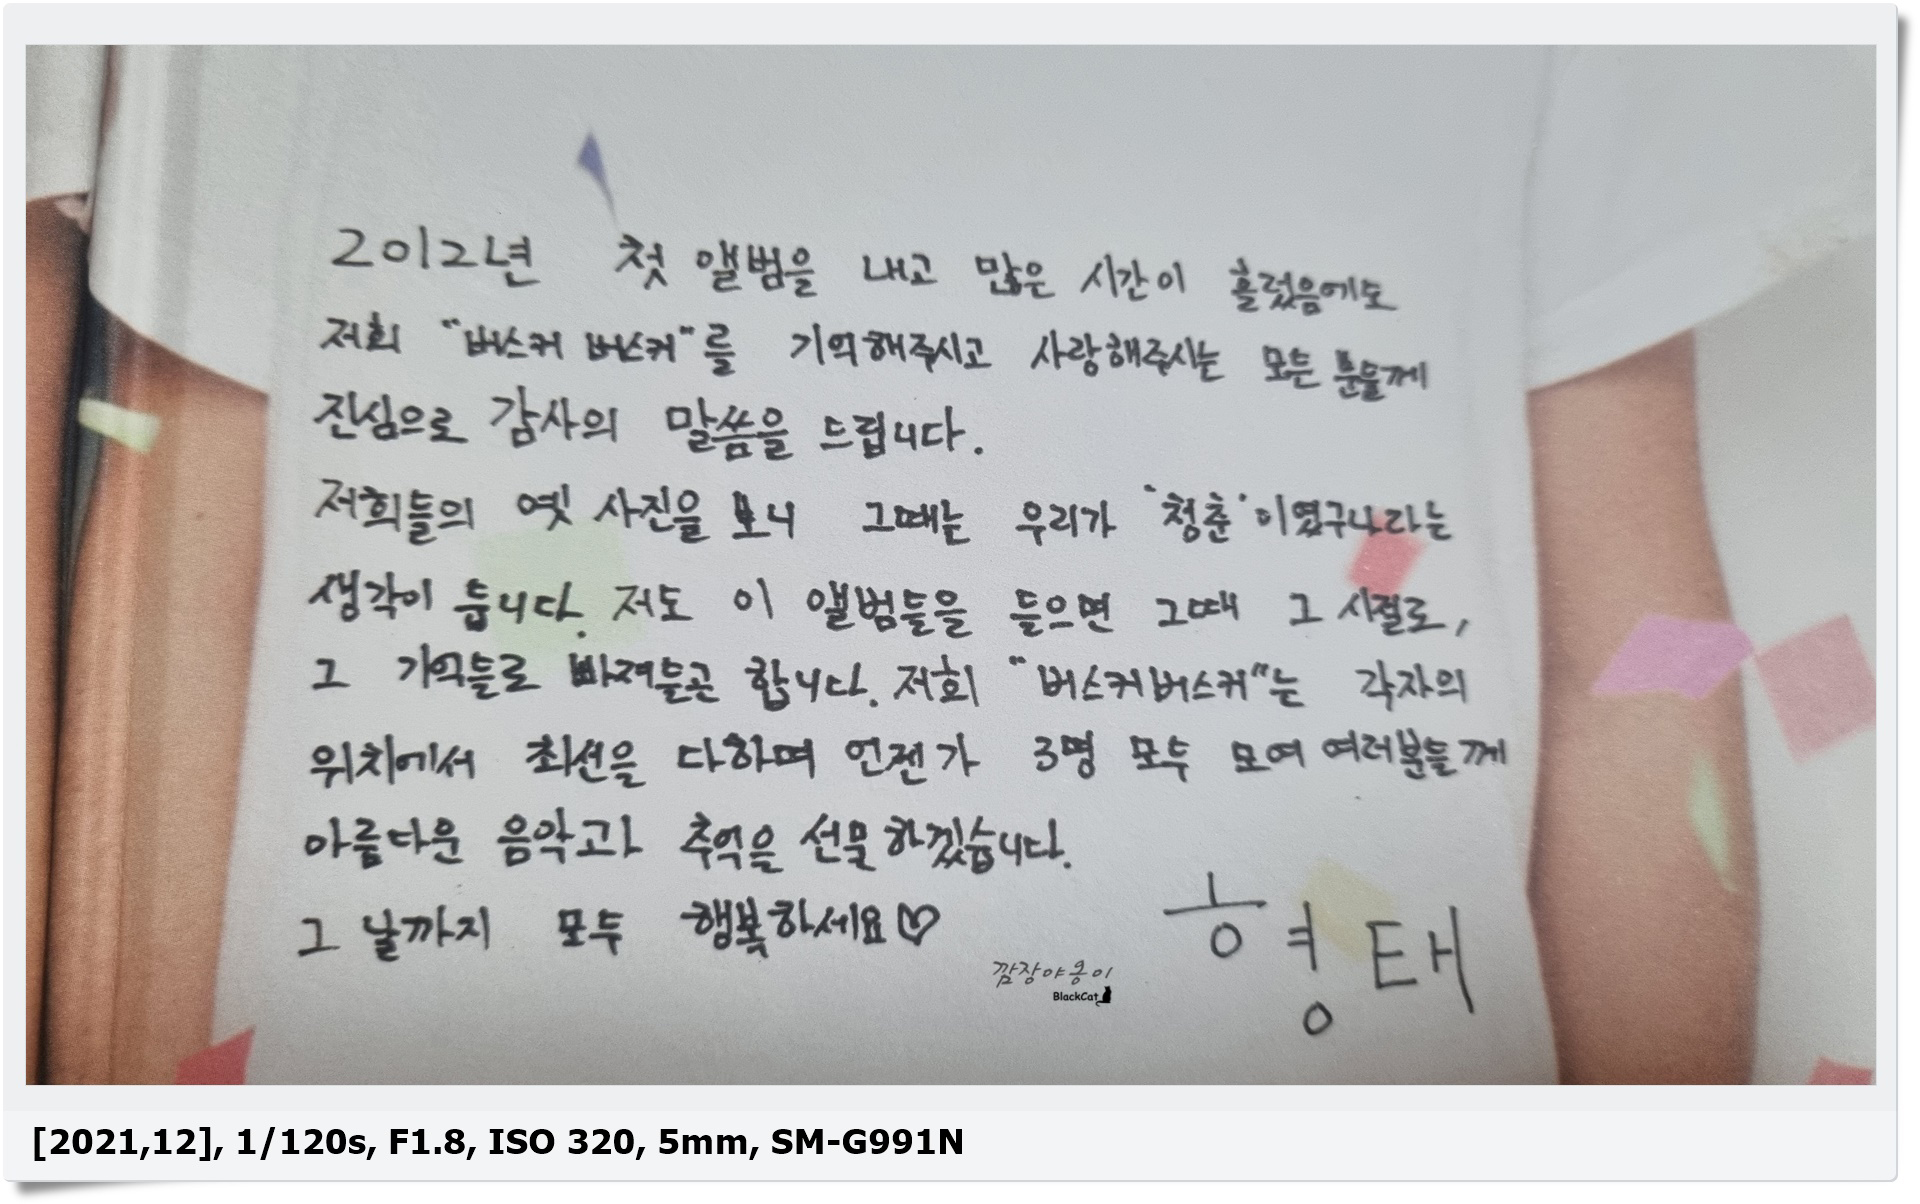 2012년 첫 앨범을 내고 많은 시간이 흘렀음에도
저희 "버스커 버스커"를 기억해주시고 사랑해주시는 모든 분들께
진심으로 감사의 말씀을 드립니다.
저희들의 옛 사진을 보니 그때는 우리가 '청춘'이였구나라는
생각이 듭니다. 저도 이 앨범들을 들으면 그때 그 시절로,
그 기억들로 빠져들곤 합니다. 저희 "버스커버스커"는 각자의
위치에서 최선을 다하며 언젠가 3명 모두 모여 여러분들께
아름다운 음악과 추억을 선물하겠습니다.
그 날까지 모두 행복하세요♡
형태
깜장야옹이
BlackCat
[2021,12], 1/120s, F1.8, ISO 320, 5mm, SM-G991N